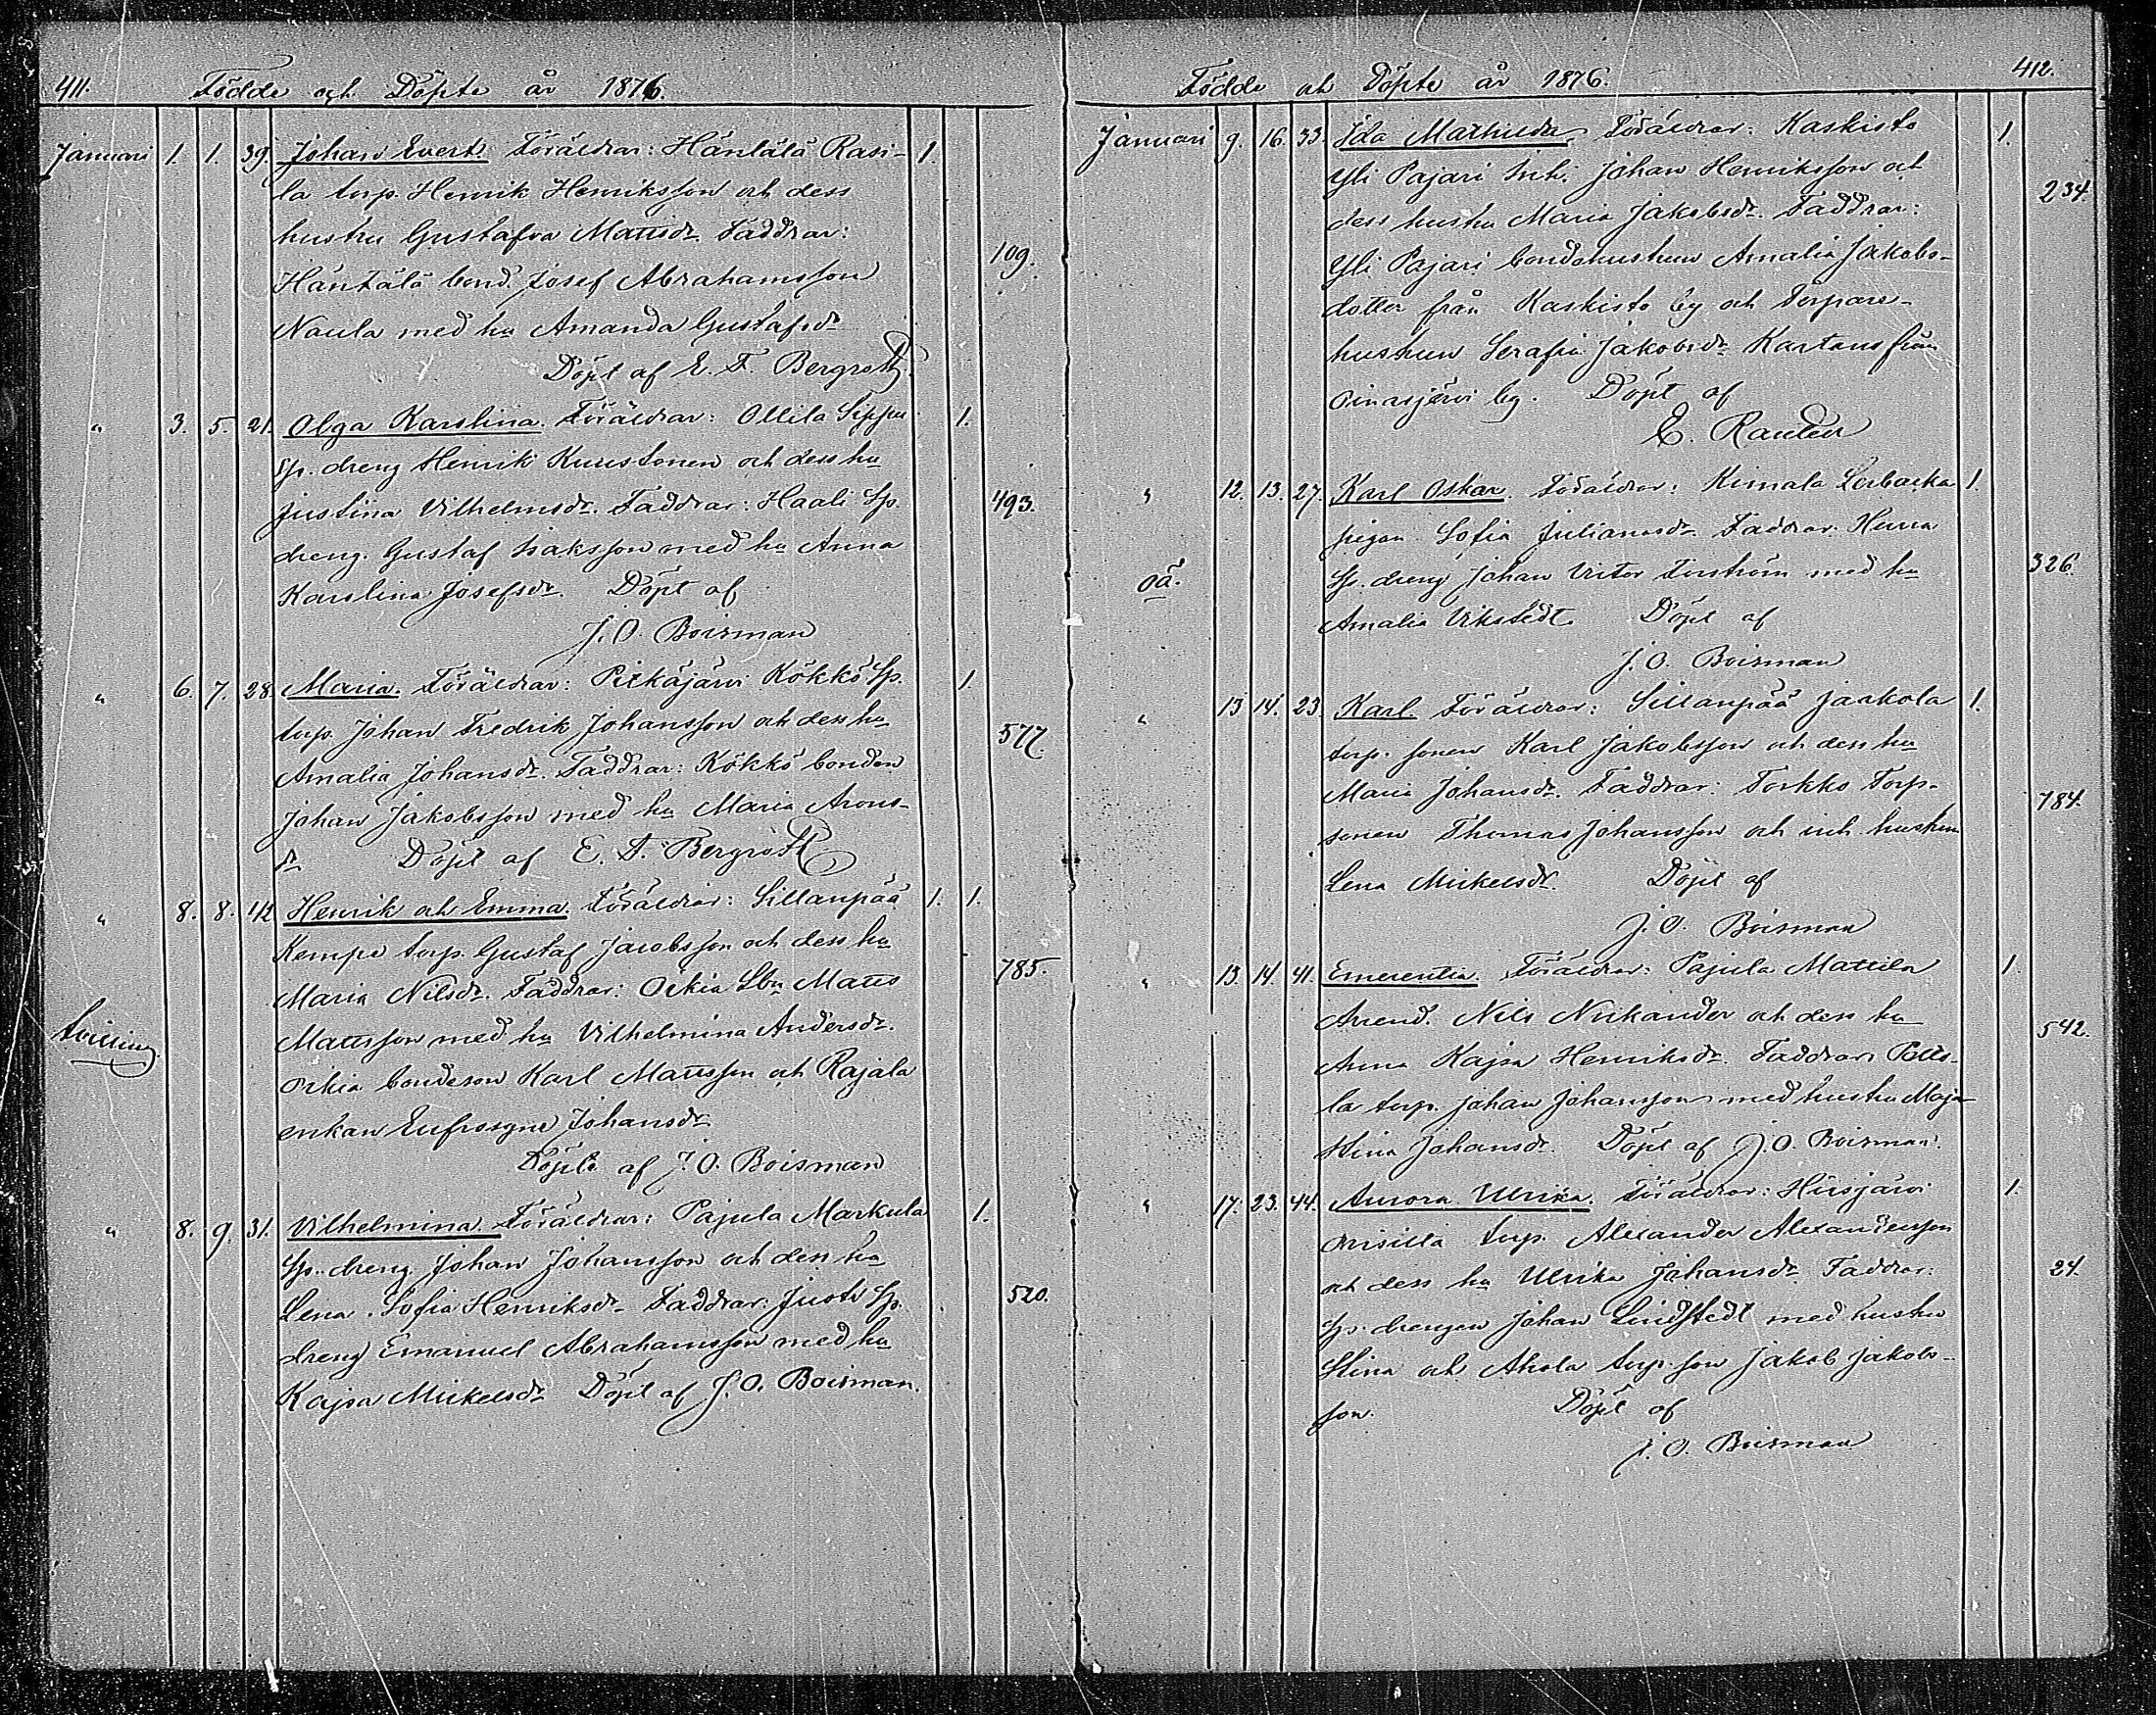 411. Födde och Döpte år 1876.
Januari 1. 1. 39. Johan Evert. Föräldrar: Häntälä Rasi- 1.
la torp. Henrik Henriksson och dess
hustru Gustafva Mattsdr. Faddrar: 109.
Häntälä bond. Josef Abrahamsson
Naula med hu Amanda Gustafsdr
Döpt af E. F. Bergroth.
" 3. 5. 21. Olga Karolina. Föräldrar: Ollila Sippu 1.
Sp. dreng Henrik Kuustonen och dess hu
Justina Vilhelmsdr. Faddrar: Haali Sp. 493.
dreng. Gustaf Isaksson med hu Anna
Karolina Josefsdr. Döpt af
J. O. Boisman
" 6. 7. 28. Maria. Föräldrar: Pitkäjärvi Kökkö Sp. 1.
torp. Johan Fredrik Johansson och dess hu 577.
Amalia Johansdr. Faddrar: Kökkö bonden
Johan Jakobsson med hu Maria Arons-
dr Döpt af E. F. Bergroth
" 8. 8. 42 Henrik och Emma. Föräldrar: Sillanpää 1. 1.
Kempe torp. Gustaf Jacobsson och dess hu
Maria Nilsdr. Faddrar: Orkia Sbn Matts 785.
tvilling. Mattsson med hu Vilhelmina Andersdr.
Orkia bondeson Karl Mattsson och Rajala
enkan Eufrosyne Johansdr
Döpte af J. O. Boisman
" 8. 9. 31. Vilhelmina. Föräldrar: Pajula Markula 1.
Sp. dreng Johan Johansson och dess hu
Lena Sofia Henriksdr Faddrar: Justi Sp. 520.
dreng Emanuel Abrahamsson med hu
Kajsa Mickelsdr Döpt af J. O. Boisman.
Födde och Döpte år 1876. 412.
Januari 9. 16. 33. Ida Mathilda. Föräldrar: Kaskisto 1.
Yli Pajari Inh. Johan Henriksson och 234.
dess hustru Maria Jakobsdr. Faddrar:
Yli Pajari bondehustrun Amalia Jakobs-
dotter från Kaskisto by och Torpare-
hustrun Serafia Jakobsdr Kartano från
Oinasjärvi by. Döpt af
E. Rauten
" 12. 13. 27. Karl Oskar. Föräldrar: Kimala Lerbacka 1.
pigan Sofia Julianasdr. Faddrar:
oä. Sp. dreng Johan Victor Forström med hu 326.
Amalia Vikstedt. Döpt af
J. O. Boisman
" 13 14. 23. Karl. Föräldrar: Sillanpää Jaakola 1.
torp. sonen Karl Jakobsson och dess hu
Maria Johansdr. Faddrar: Torkko Torp- 784.
sonen Thomas Johansson och inh hustrun
Lena Mickelsdr. Döpt af
J. O. Boisman
" 13. 14. 41. Emerentia. Föräldrar: Pajula Mattila 1.
Arrend. Nils Nickander och dess hu 542.
Anna Kajsa Henriksdr. Faddrar:
la torp. Johan Johansson med hustru Maja
Stina Johansdr. Döpt af J. O. Boisman.
" 17. 23. 44. Aurora Ulrika. Föräldrar: Hirsjärvi 1.
torp. Alexander Alexandersson
och dess hu Ulrika Johansdr. Faddrar: 24.
Sp. drengen Johan Lindstedt med hustru
Stina och Ahola torp. son Jakob Jakobs-
son. Döpt af
J. O. Boisman